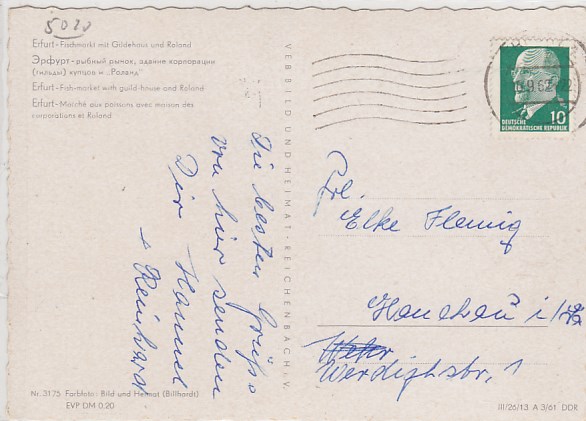 5020
Erfurt - Fischmarkt mit Gildehaus und Roland
Эрфурт - рыбный рынок, здание корпорации
(гильды) купцов и „Роланд“
Erfurt - Fish-market with guild-house and Roland
Erfurt - Marché aux poissons avec maison des
corporations et Roland
VEB BILD UND HEIMAT · REICHENBACH i. V.
Die besten Grüße
von hier senden
Dir Hannel
+ Reinhard
.9.62
DEUTSCHE
DEMOKRATISCHE REPUBLIK
10
Frl.
Elke Flemig
i/Sa
Werdigtstr. 1
Nr. 3175 Farbfoto: Bild und Heimat (Billhardt)
EVP DM 0.20
III/26/13 A 3/61 DDR